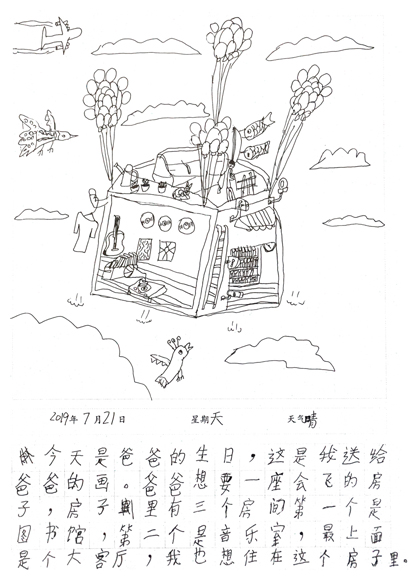 2019年7月21日 星期天 天气晴
今天是爸爸的生日，这是我送给
爸爸的画。爸爸想要一座会飞的房
子，房子里有三个房间，第一个是
图书馆，第二个是音乐室，最上面
是个大客厅，我也想住在这个房子里。